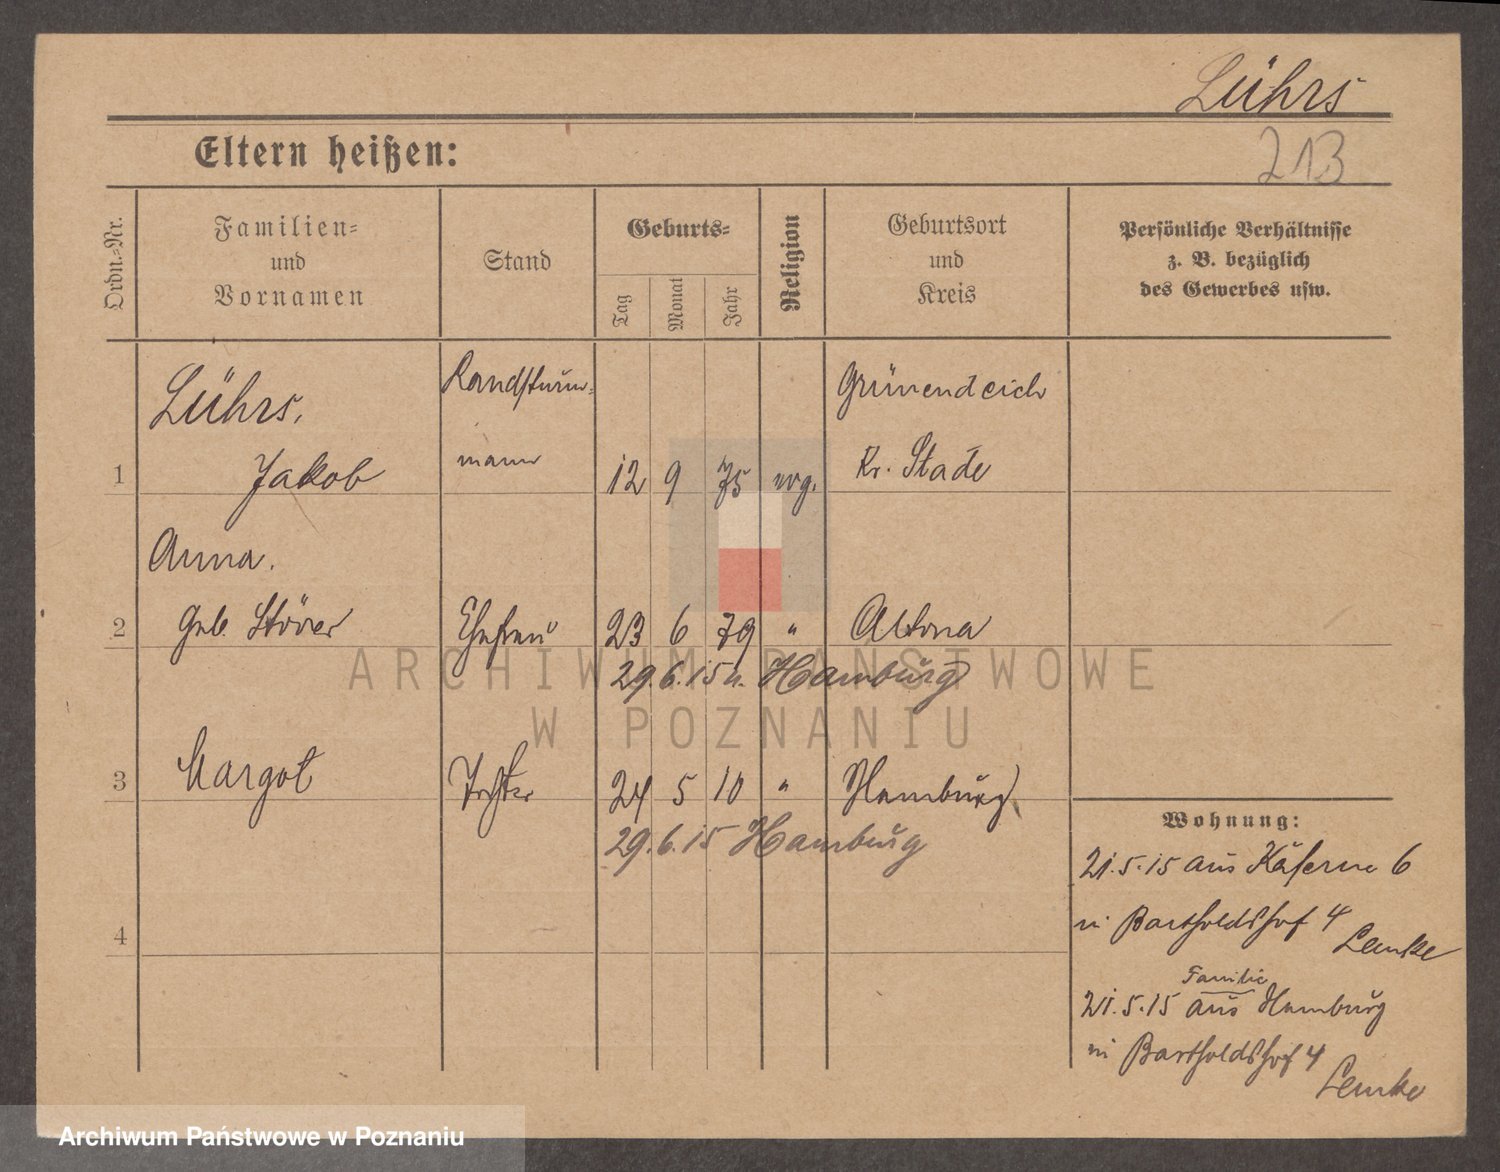 Lührs
213
Eltern heißen:
Ordn.-Nr.
Familien-
und
Vornamen
Stand
Geburts-
Tag
Monat
Jahr
Religion
Geburtsort
und
Kreis
Persönliche Verhältnisse
z. B. bezüglich
des Gewerbes usw.
Lührs,
Landsturm-
Grünendeich
1
Jakob
mann
12 9 75 evg.
Kr. Stade
Anna.
2
geb. Stöver
Ehefrau
23 6 79 "
Altona
29.6.15 n. Hamburg
3
Margot
Tochter
24 5 10 "
Hamburg
29.6.15 Hamburg
4
Wohnung:
21.5.15 aus Kaserne 6
in Bartholdshof 4
Lemke
Familie
21.5.15 aus Hamburg
in Bartholdshof 4
Lemke
ARCHIWUM PAŃSTWOWE
W POZNANIU
Archiwum Państwowe w Poznaniu